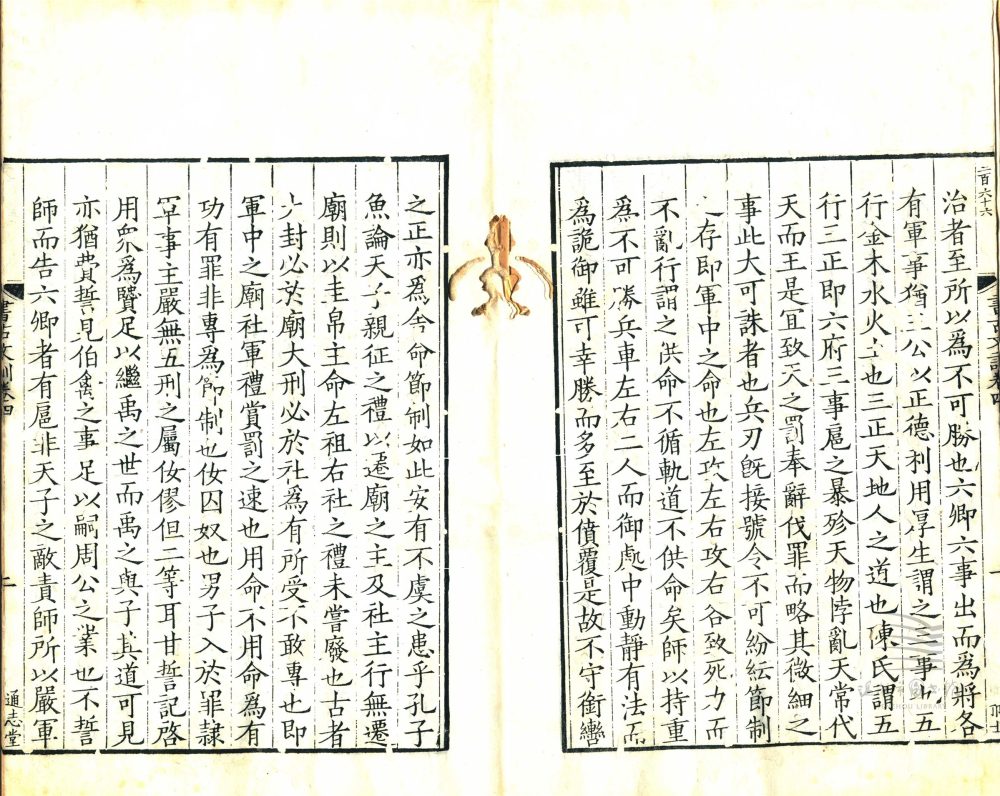 二百六十六
治者至所以為不可勝也六卿六事出而為將各
有軍事猶三公以正德利用厚生謂之三事也五
行金木水火土也三正天地人之道也陳氏謂五
行三正即六府三事扈之暴殄天物悖亂天常代
天而王是宜致天之罰奉辭伐罪而略其微細之
事此大可誅者也兵刃既接號令不可紛紜節制
存即軍中之命也左攻左右攻右各致死力而
不亂行謂之供命不循軌道不供命矣師以持重
為不可勝兵車左右二人而御處中動靜有法而
為詭御雖可幸勝而多至於僨覆是故不守銜轡
之正亦為命節制如此安有不虞之患乎孔子
魚論天子親征之禮以遷廟之主及社主行無遷
廟則以圭帛主命左祖右社之禮未嘗廢也古者
封必於廟大刑必於社為有所受不敢專也即
軍中之廟社軍禮賞罰之速也用命不用命為有
功有罪非專為節制也汝囚奴也男子入於罪隸
軍事主嚴無五刑之屬攸僇但二等耳甘誓記啓
用眾為贒足以繼禹之世而禹之與子其道可見
亦猶費誓見伯禽之事足以嗣周公之業也不誓
師而告六卿者有扈非天子之敵責師所以嚴軍
書古文訓卷四
通志堂